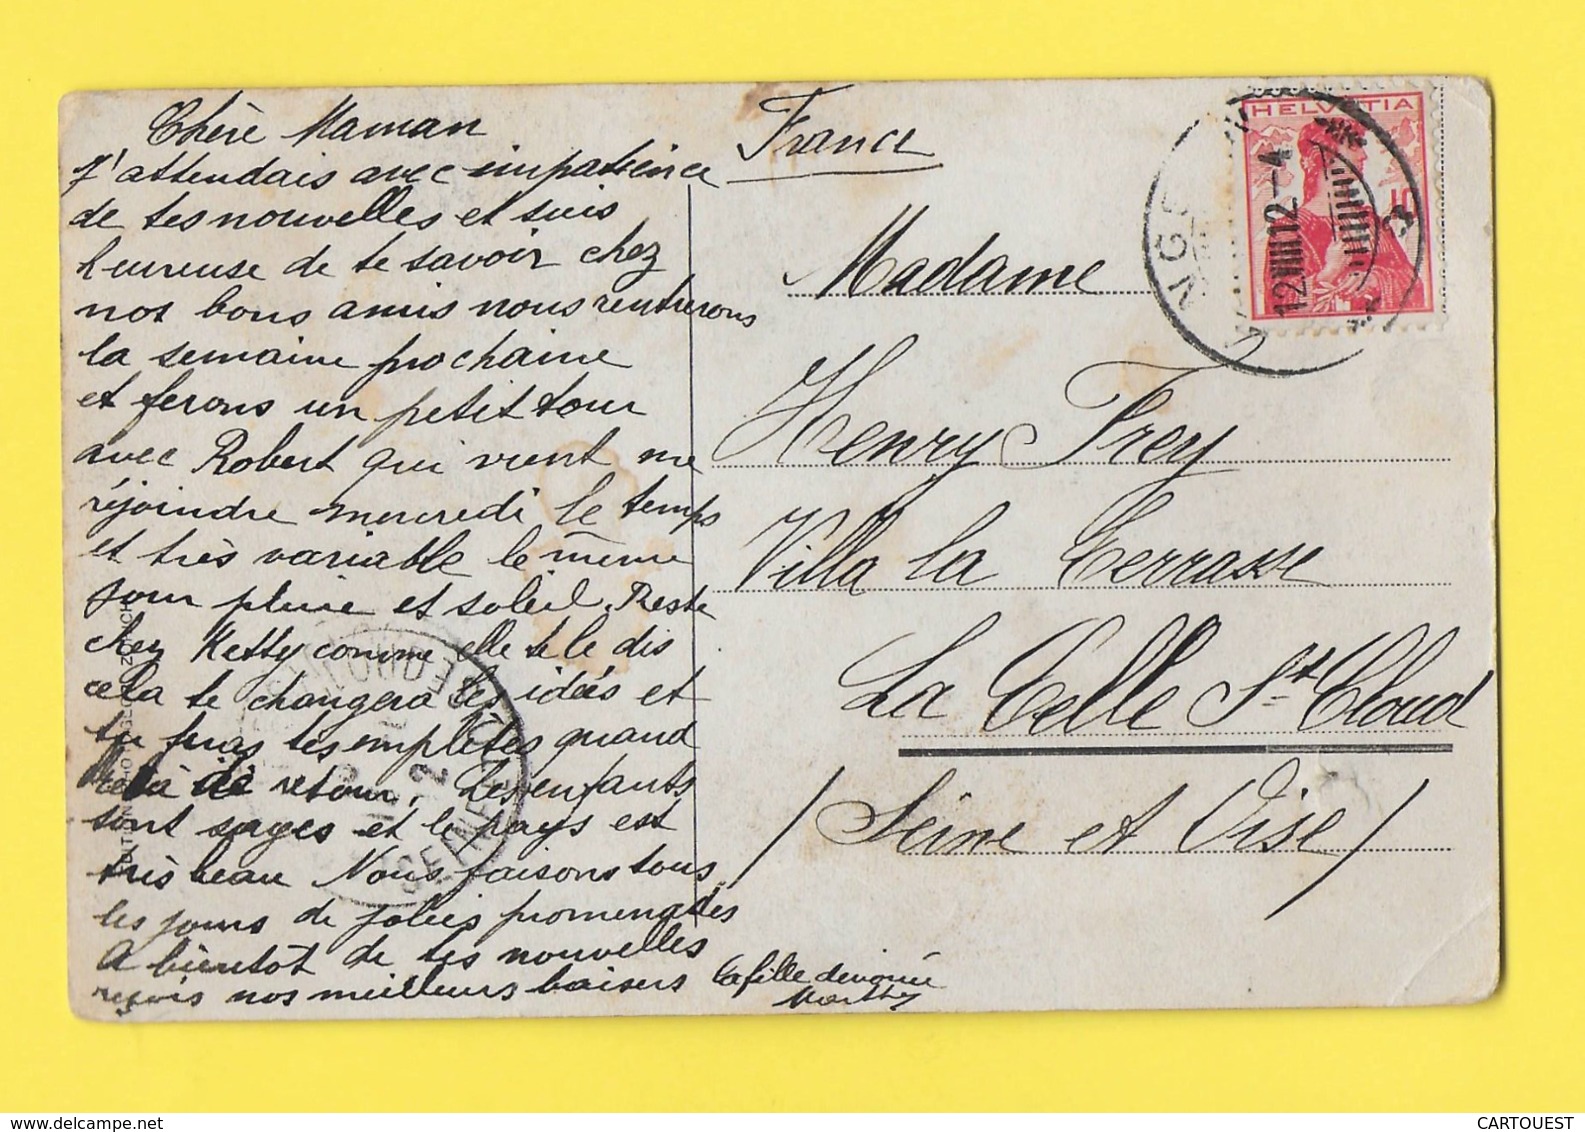 Chère Maman
J'attendais avec impatience
de tes nouvelles et suis
heureuse de te savoir chez
nos bons amis nous rentrerons
la semaine prochaine
et ferons un petit tour
avec Robert qui vient me
réjoindre mercredi le temps
et très variable le même
jour pluie et soleil. Reste
chez Ketty comme elle te le dis
cela te changera les idées et
tu feras tes emplètes quand
de retour. Les enfants
sont sages et le pays est
très beau Nous faisons tous
les jours de jolies promenades
A bientôt de tes nouvelles
reçois nos meilleurs baisers
ta fille devouée
Marthy
France
Madame
Henry Frey
Villa la Terrasse
La Celle St Cloud
(Seine et Oise)
HELVETIA
10
12.VIII.12-4
CARTOUEST